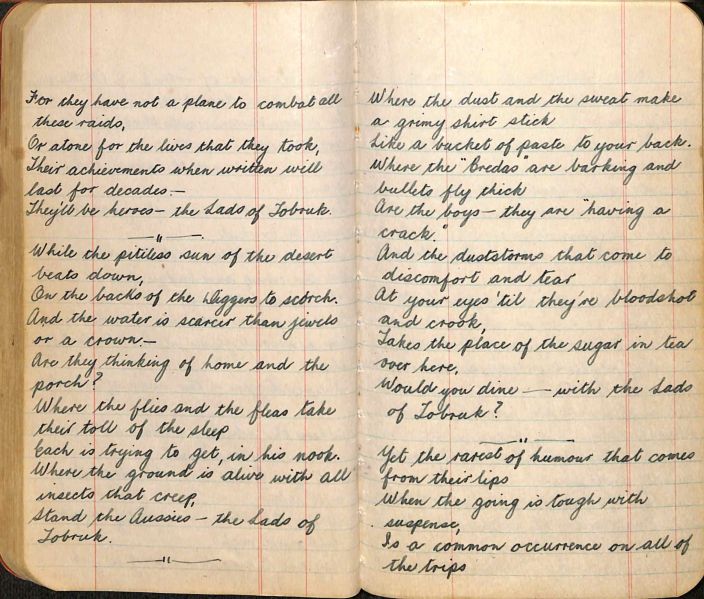 For they have not a plane to combat all
these raids,
Or atone for the lives that they took,
Their achievements when written will
last for decades —
They'll be heroes — the Lads of Tobruk.
While the pitiless sun of the desert
beats down,
On the backs of the Diggers to scorch.
And the water is scarcer than jewels
or a crown —
Are they thinking of home and the
porch?
Where the flies and the fleas take
their toll of the sleep
Each is trying to get, in his nook.
Where the ground is alive with all
insects that creep,
Stand the Aussies — the Lads of
Tobruk.
Where the dust and the sweat make
a grimy shirt stick
Like a bucket of paste to your back.
Where the "Bredas" are barking and
bullets fly thick
Are the boys — they are "having a
crack."
And the duststorms that come to
discomfort and tear
At your eyes 'til they're bloodshot
and crook,
Takes the place of the sugar in tea
over here,
Would you dine — with the Lads
of Tobruk?
Yet the rarest of humour that comes
from their lips
When the going is tough with
suspense,
Is a common occurrence on all of
the trips